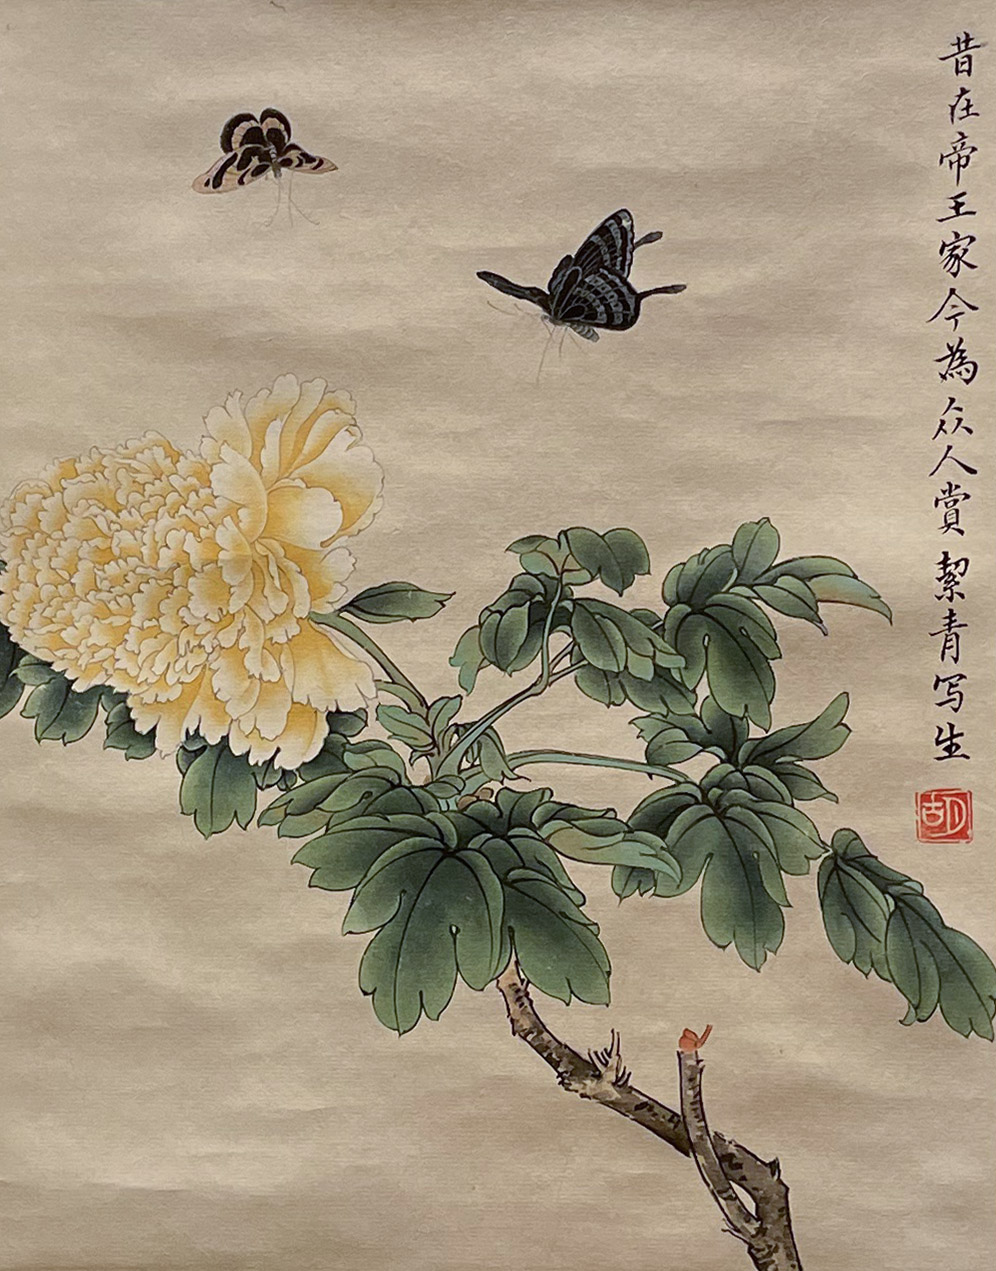 昔在帝王家今為众人賞絜青写生
胡